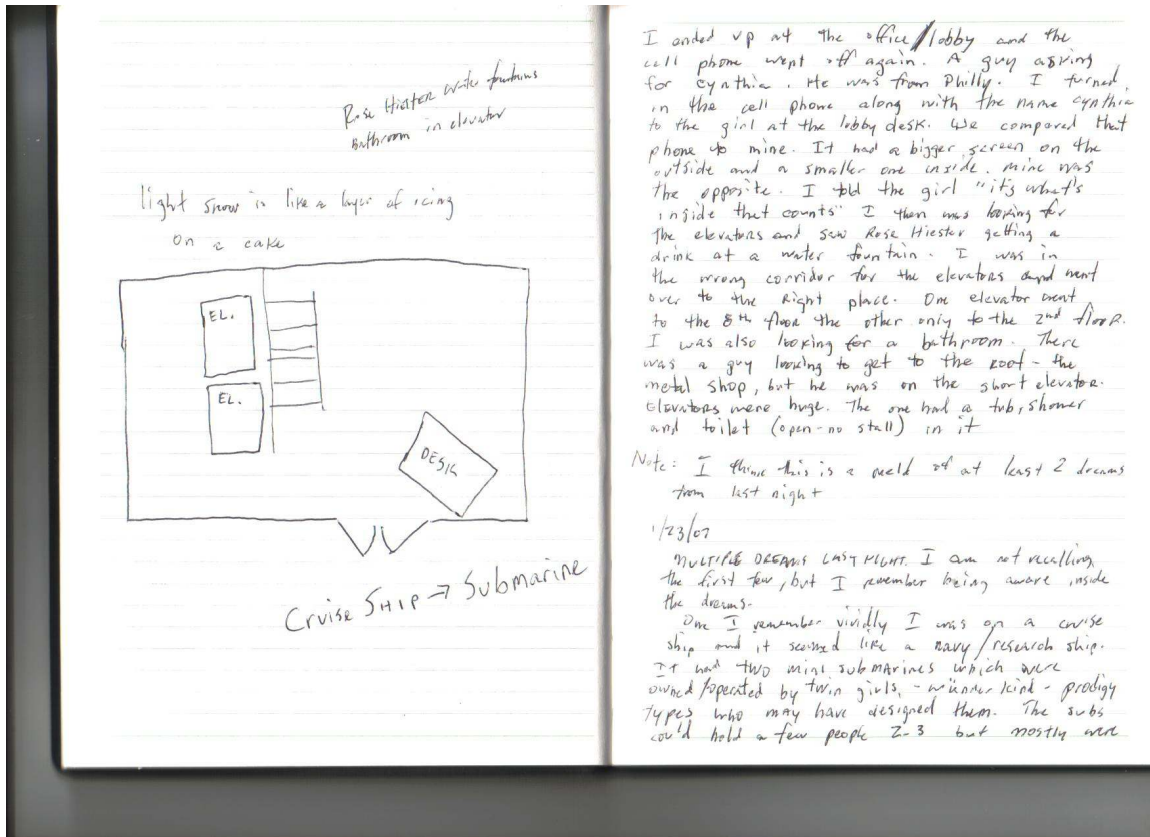 Rose Hiester water fountains
Bathroom in elevator
light snow is like a layer of icing
on a cake
EL.
EL.
DESK
Cruise SHIP → Submarine
I ended up at the office/lobby and the
cell phone went off again. A guy asking
for Cynthia. He was from Philly. I turned
in the cell phone along with the name Cynthia
to the girl at the lobby desk. We compared that
phone to mine. It had a bigger screen on the
outside and a smaller one inside. mine was
the opposite. I told the girl "it's what's
inside that counts" I then was looking for
the elevators and saw Rose Hiester getting a
drink at a water fountain. I was in
the wrong corridor for the elevators and went
over to the Right place. One elevator went
to the 8th floor the other only to the 2nd floor.
I was also looking for a bathroom. There
was a guy looking to get to the roof - the
metal shop, but he was on the short elevator.
Elevators were huge. The one had a tub, shower
and toilet (open-no stall) in it
Note: I think this is a meld of at least 2 dreams
from last night
1/23/07
MULTIPLE DREAMS LAST NIGHT. I am not recalling
the first few, but I remember being aware inside
the dreams.
One I remember vividly I was on a cruise
ship and it seemed like a navy/research ship.
It had two mini submarines which were
owned/operated by twin girls, - wünderkind - prodigy
types who may have designed them. The subs
could hold a few people 2-3 but mostly were